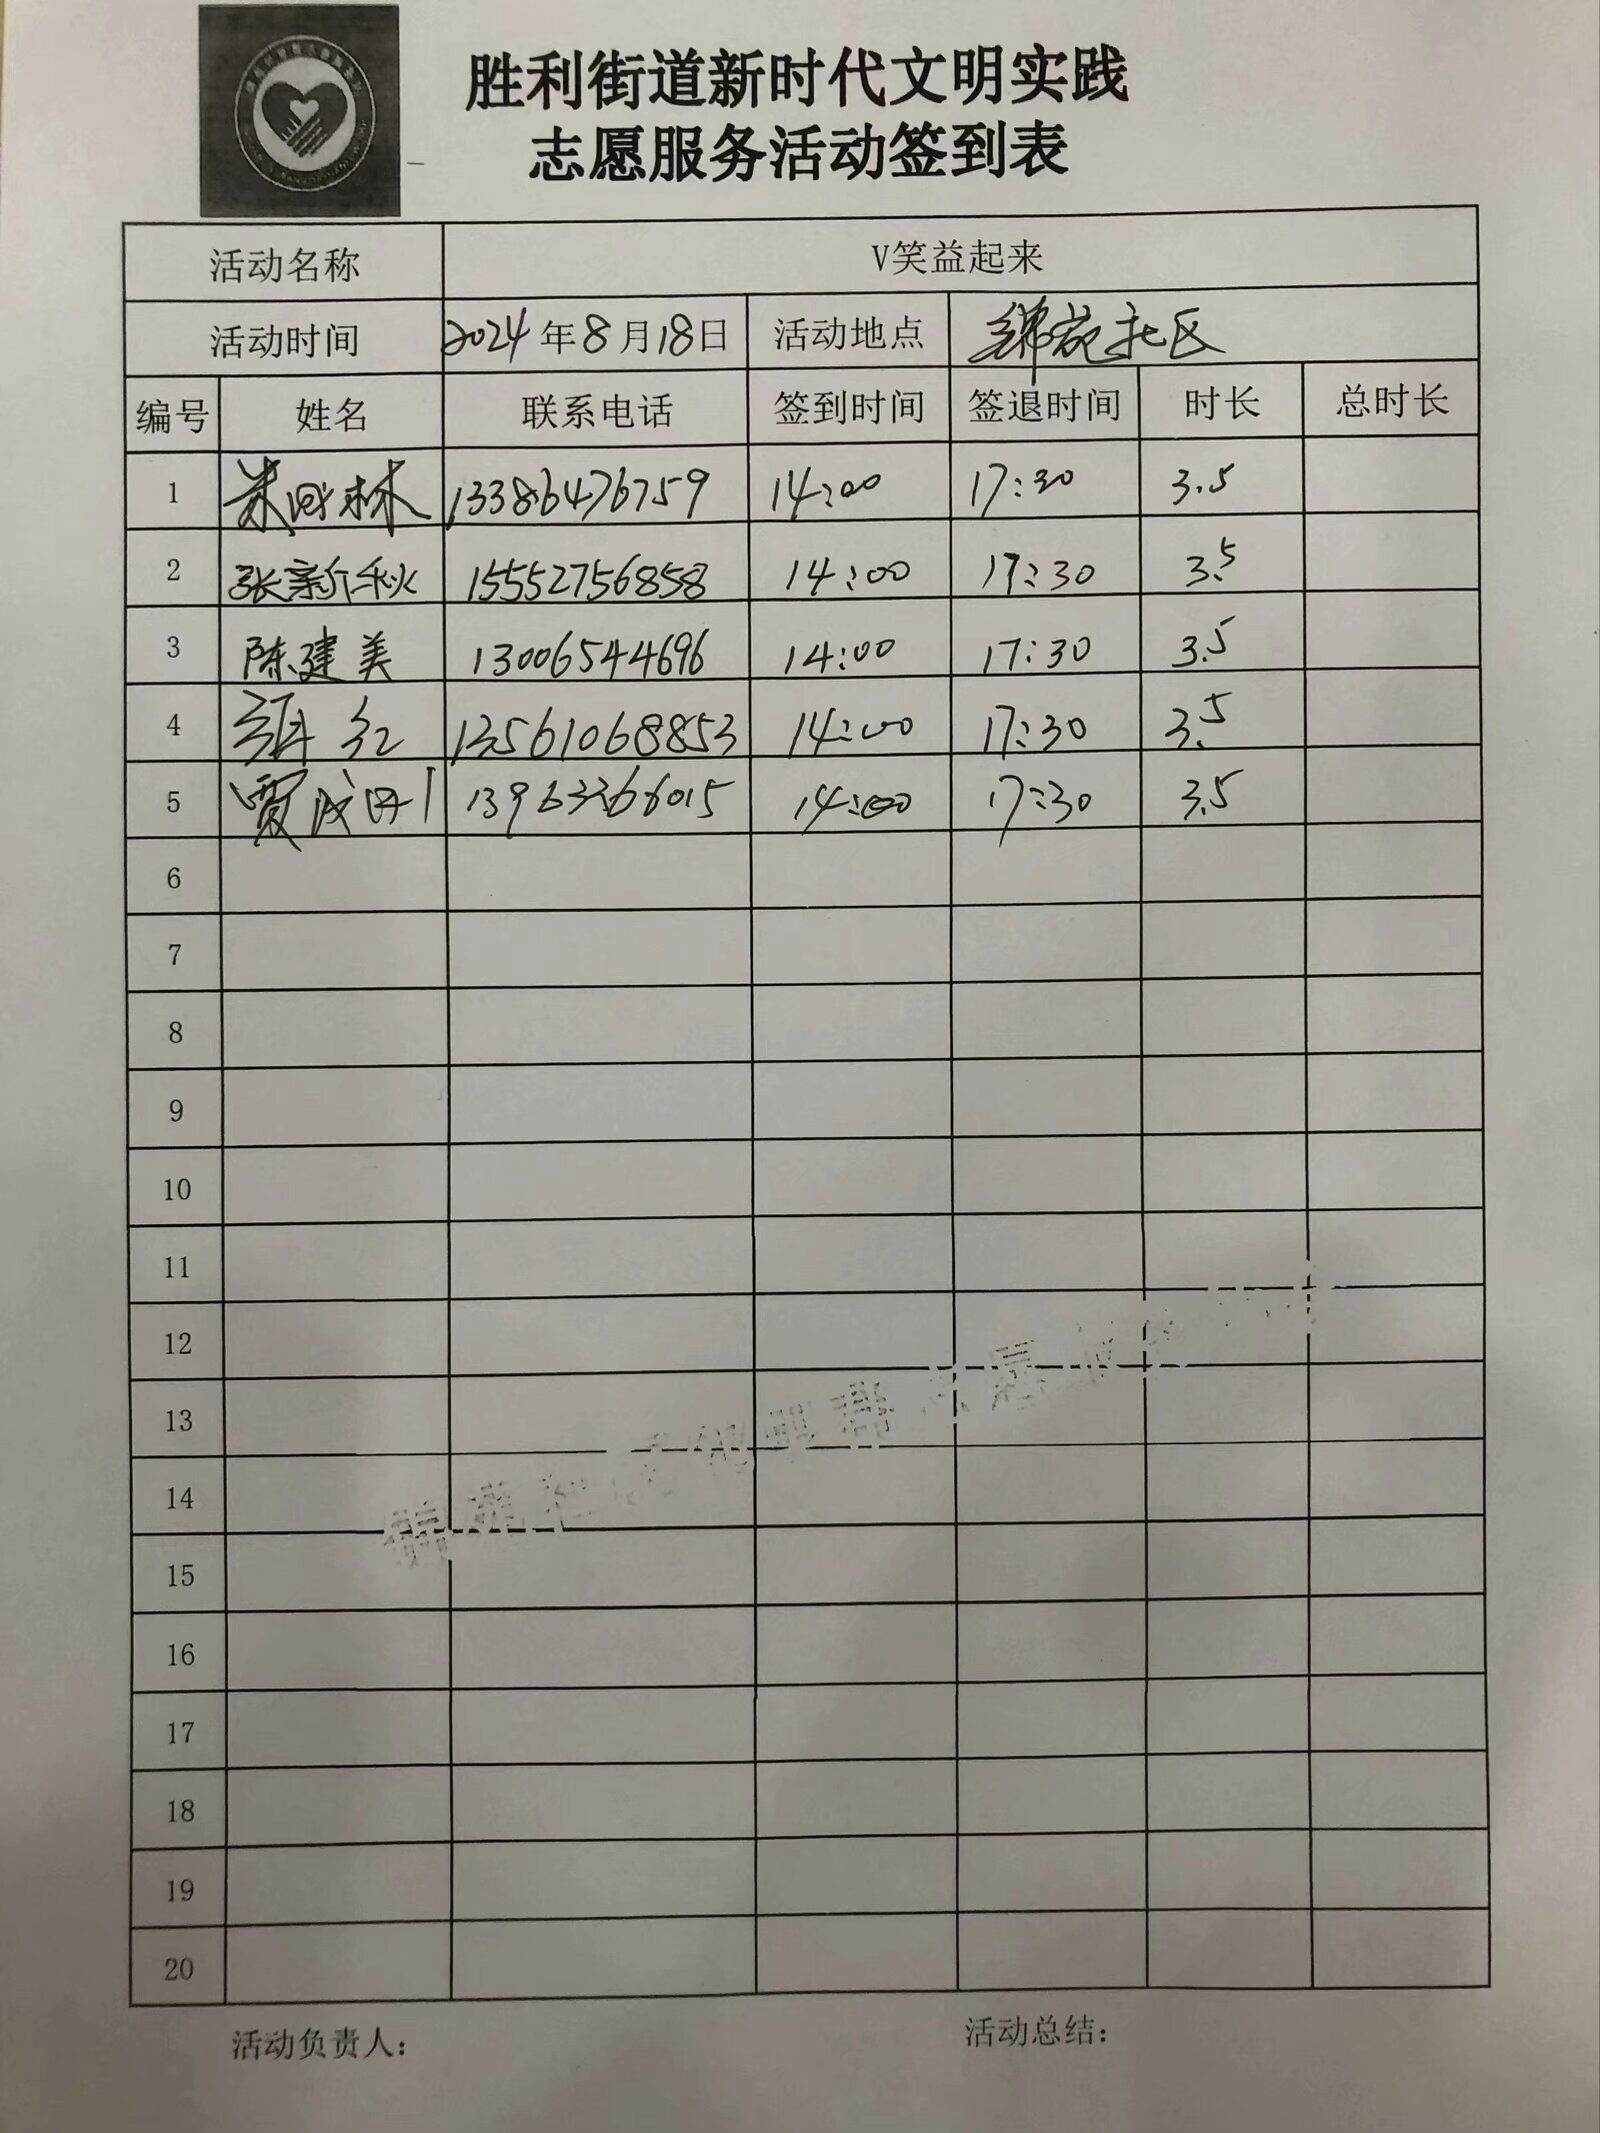 胜利街道新时代文明实践
志愿服务活动签到表
活动名称 V笑益起来
活动时间 2024年8月18日 活动地点 锦苑社区
编号 姓名 联系电话 签到时间 签退时间 时长 总时长
1 林 13386476759 14:00 17:30 3.5
2 张新秋 15552756858 14:00 17:30 3.5
3 陈建美 13006544696 14:00 17:30 3.5
4 红 13561068853 14:00 17:30 3.5
5 贾成 13963366015 14:00 17:30 3.5
6
7
8
9
10
11
12
13
14
15
16
17
18
19
20
活动负责人： 活动总结：